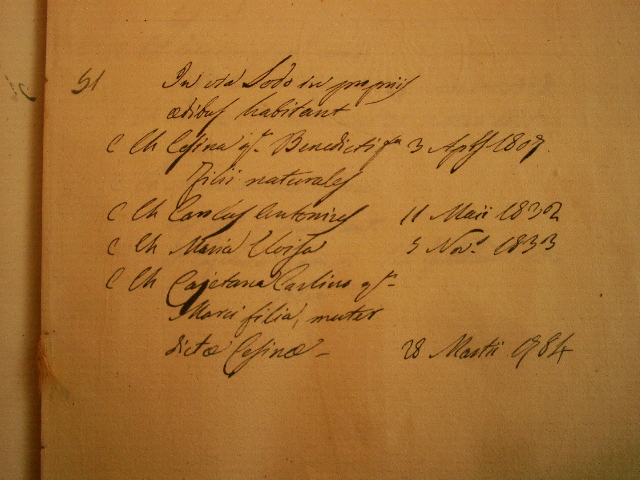 51 In via Lodo in propriis
ædibus habitant
C Ch Cesina q.m Benedicti 3 Apr 1807.
Filii naturales
C Ch Carolus Antonius 11 Maii 1832
C Ch Maria Eloisa 5 Nov. 1833
C Ch Cajetana Carlini q.m
Marci filia, mater
dictæ Cesinæ - 28 Martii 1784